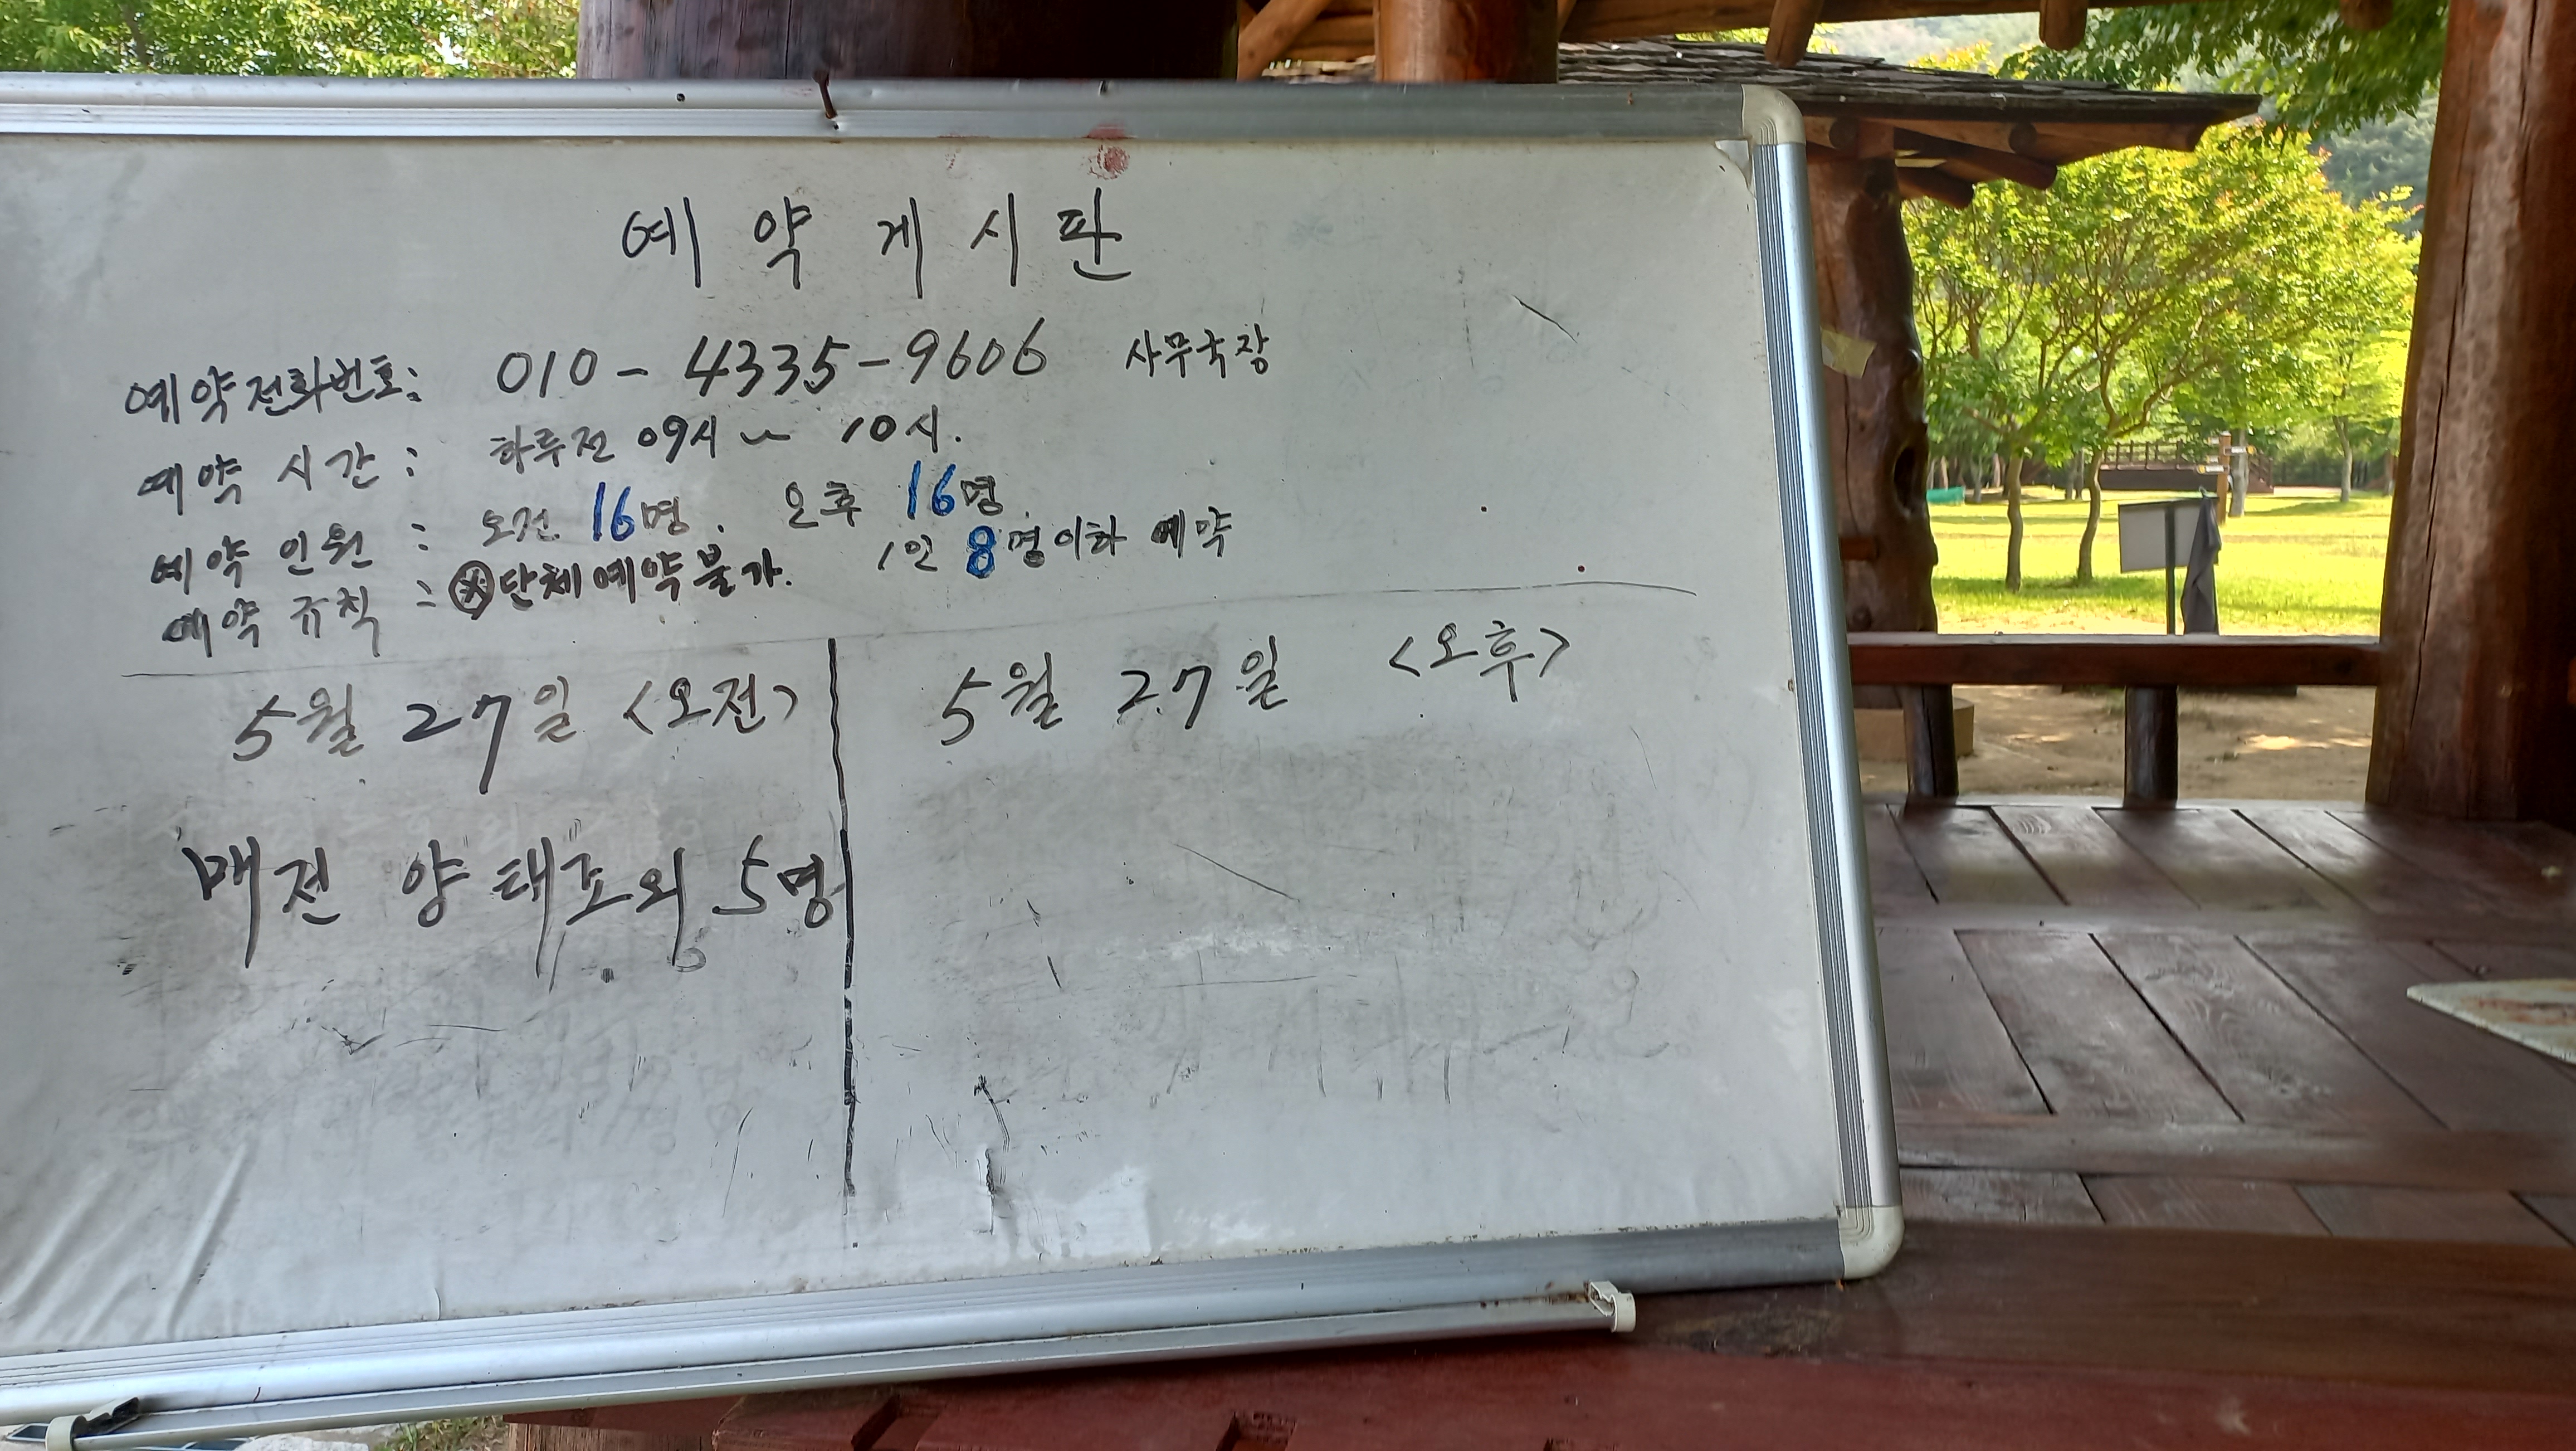 예약게시판
예약전화번호: 010-4335-9606 사무국장
예약 시간: 하루전 09시~10시.
예약 인원: 오전 16명. 오후 16명
예약 규칙: ※단체예약불가. 1인 8명이하 예약
5월 27일 <오전>
매전 양태조외 5명
5월 27일 <오후>